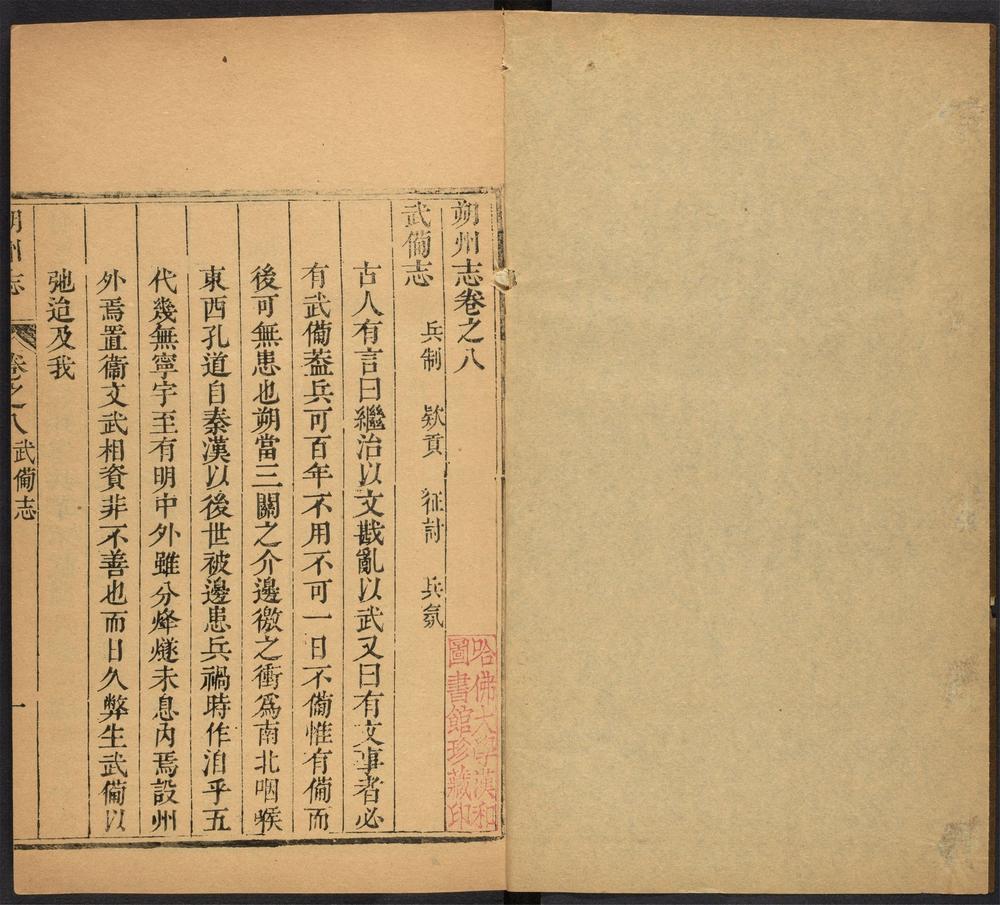 朔州志卷之八
武備志
兵制 欵貢 征討 兵氛
古人有言曰繼治以文戡亂以武又曰有文事者必
有武俻葢兵可百年不用不可一日不俻惟有俻而
後可無患也朔當三關之介邊徼之衝爲南北咽喉
東西孔道自秦漢以後世被邊患兵禍時作洎乎五
代幾無寧宇至有明中外雖分烽燧未息內焉設州
外焉置衞文武相資非不善也而日久弊生武俻以
弛迨及我
朔州志 卷之八 武俻志 一
哈佛大學漢和
圖書館珍藏印